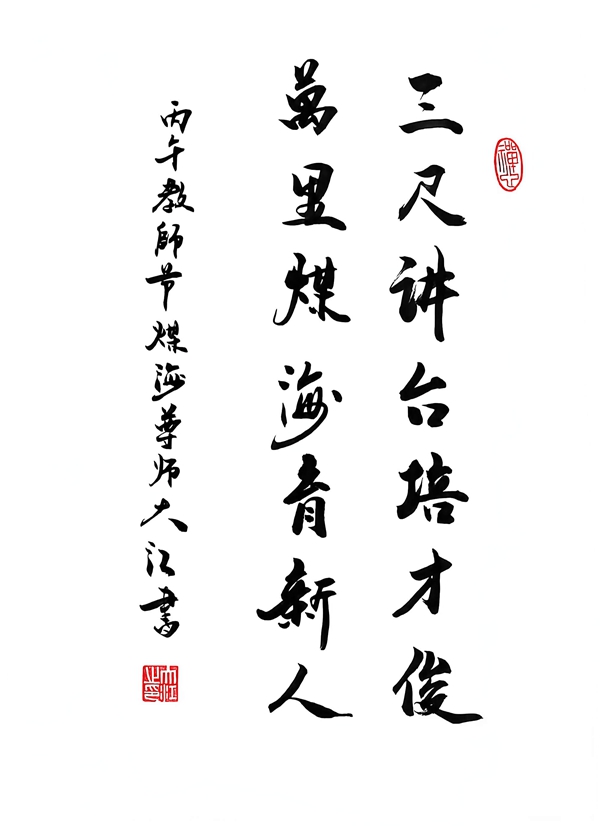 三尺讲台培才俊
萬里煤海育新人
丙午教師节煤海尊师大江書
大江之印